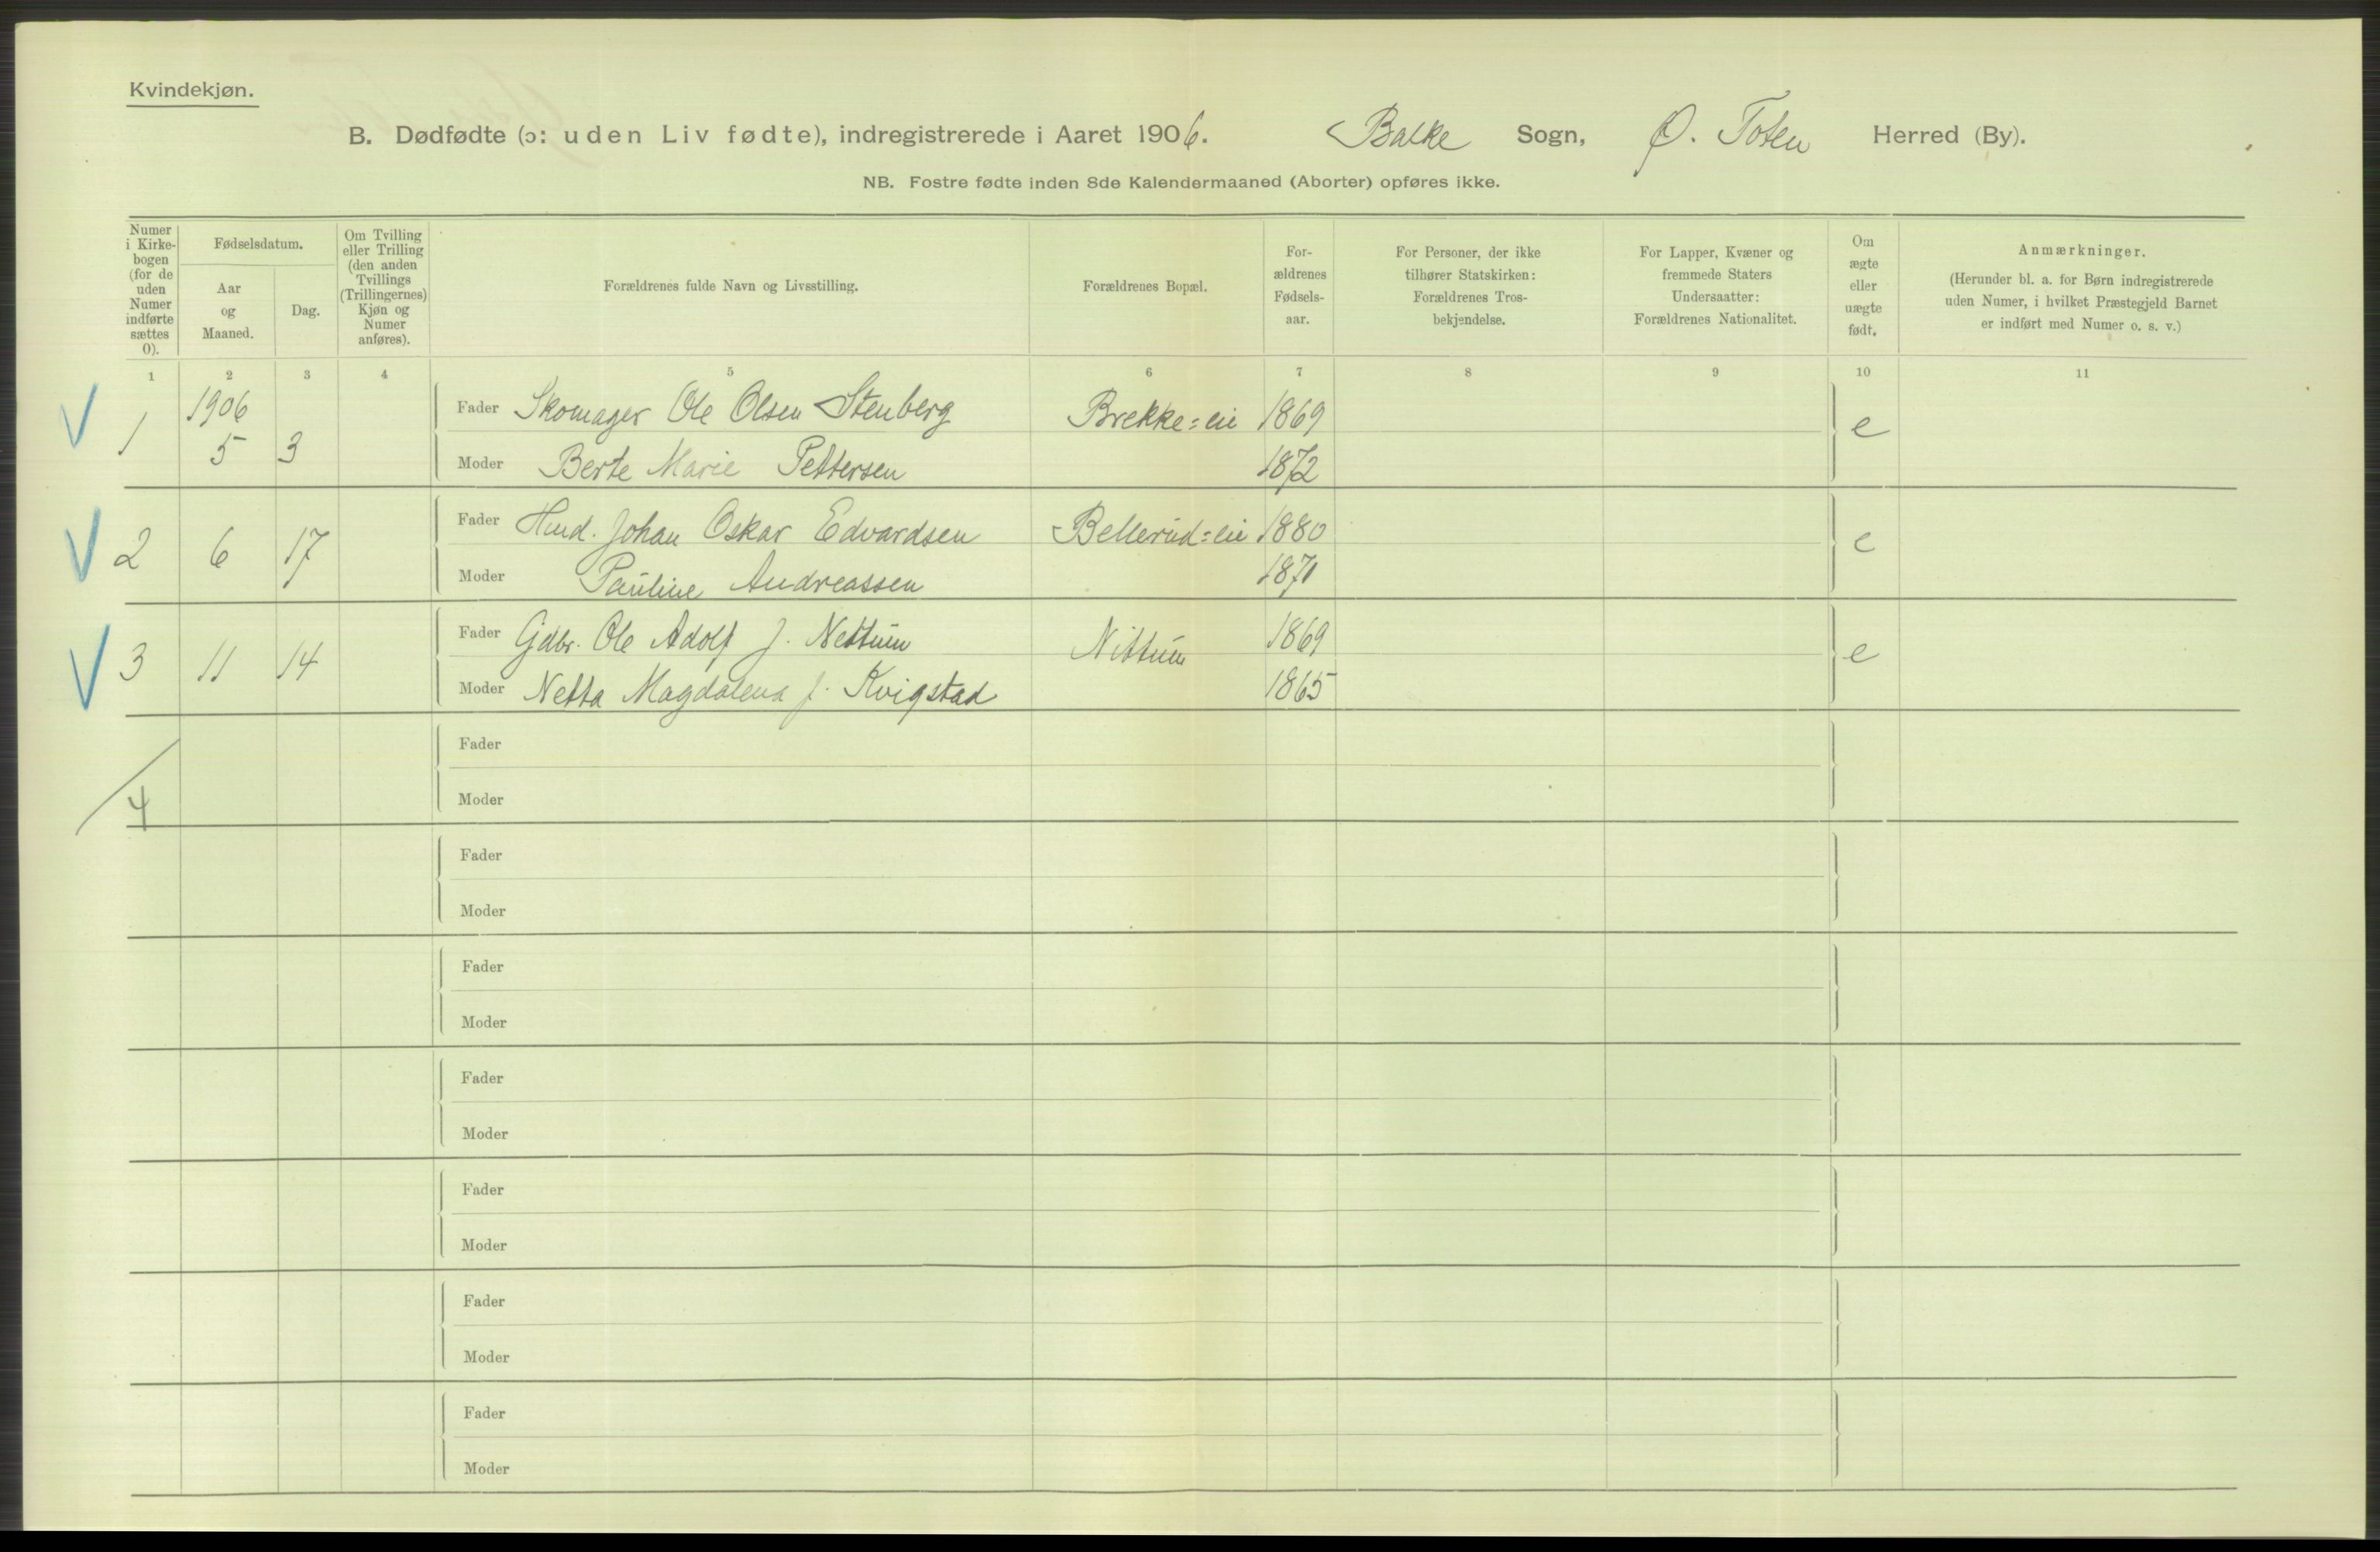 Kvindekjøn.
B. Dødfødte (ɔ: uden Liv fødte), indregistrerede i Aaret 1906. Balke Sogn, Ø. Toten Herred (By).
NB. Fostre fødte inden 8de Kalendermaaned (Aborter) opføres ikke.
Numer i Kirke-bogen (for de uden Numer indførte sættes 0).
Fødselsdatum.
Aar og Maaned.
Dag.
Om Tvilling eller Trilling (den anden Tvillings (Trillingernes) Kjøn og Numer anføres).
Forældrenes fulde Navn og Livsstilling.
Forældrenes Bopæl.
For-ældrenes Fødsels-aar.
For Personer, der ikke tilhører Statskirken: Forældrenes Tros-bekjendelse.
For Lapper, Kvæner og fremmede Staters Undersaatter: Forældrenes Nationalitet.
Om ægte eller uægte født.
Anmærkninger.
(Herunder bl. a. for Børn indregistrerede uden Numer, i hvilket Præstegjeld Barnet er indført med Numer o. s. v.)
1 2 3 4 5 6 7 8 9 10 11
1906
1 5 3 Fader Skomager Ole Olsen Stenberg Brekke=eie 1869 e
Moder Berte Marie Pettersen 1872
2 6 17 Fader Husd. Johan Oskar Edvardsen Bellerud=eie 1880 e
Moder Pauline Andreassen 1871
3 11 14 Fader Gdbr. Ole Adolf J. Nettum Nittum 1869 e
Moder Netta Magdalena f. Kvigstad 1865
Fader
4 Moder
Fader
Moder
Fader
Moder
Fader
Moder
Fader
Moder
Fader
Moder
Fader
Moder